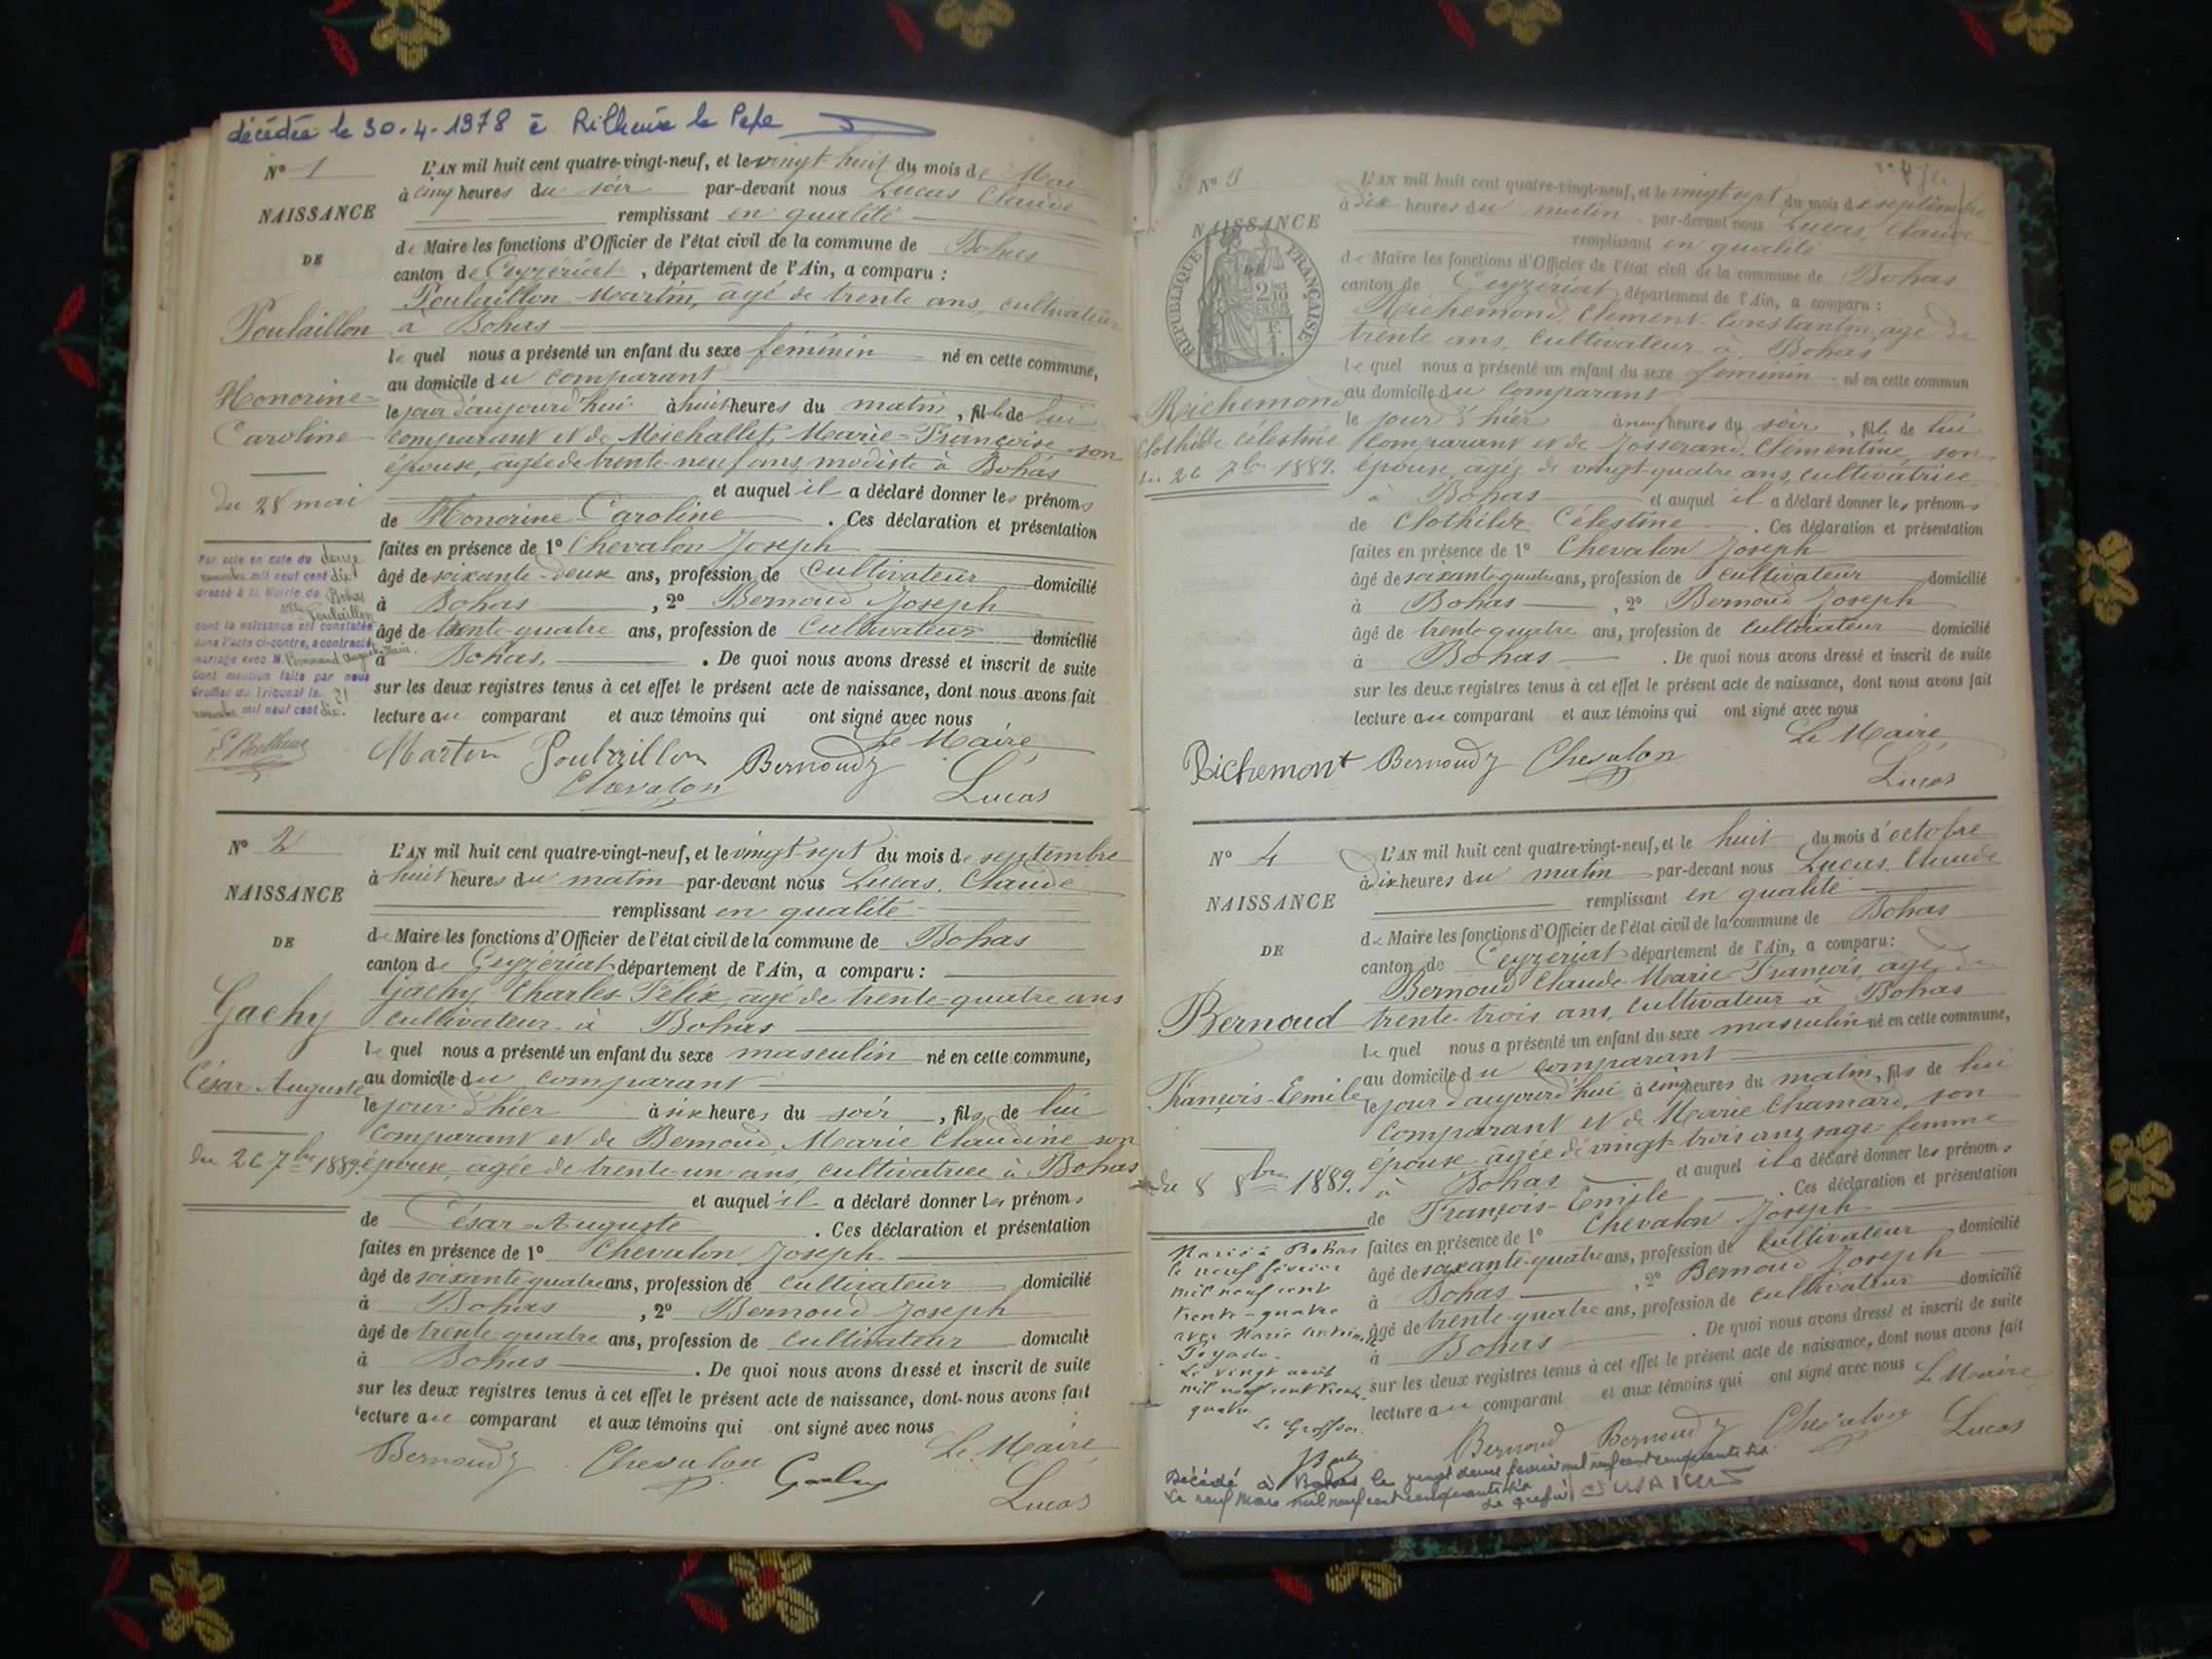 décédée le 30-4-1978 à Rillieux le Pape
N° 1
NAISSANCE
DE
Poulaillon
Honorine-
Caroline
du 28 mai
L'AN mil huit cent quatre-vingt-neuf, et le vingt huit du mois de Mai
à cinq heures du soir par-devant nous Lucas Claude
remplissant en qualité
de Maire les fonctions d'Officier de l'état civil de la commune de Bohas
canton de Ceyzériat, département de l'Ain, a comparu :
Poulaillon Martin, âgé de trente ans, cultivateur
à Bohas
le quel nous a présenté un enfant du sexe féminin né en cette commune,
au domicile du comparant
le jour d'aujourd'hui à huit heures du matin, fille de lui
comparant et de Michallet, Marie-Françoise son
épouse, agée de trente-neuf ans, modiste à Bohas
et auquel il a déclaré donner les prénoms
de Honorine Caroline. Ces déclaration et présentation
faites en présence de 1° Chevalon Joseph
âgé de soixante-deux ans, profession de cultivateur domicilié
à Bohas, 2° Bernoud Joseph
âgé de trente-quatre ans, profession de cultivateur domicilié
à Bohas. De quoi nous avons dressé et inscrit de suite
sur les deux registres tenus à cet effet le présent acte de naissance, dont nous avons fait
lecture au comparant et aux témoins qui ont signé avec nous
Le Maire
Martin Poulaillon Bernoud
Chevalon Lucas
Par acte en date du douze
novembre mil neuf cent dix
dressé à la Mairie de Bohas
Mlle Poulaillon
dont la naissance est constatée
dans l'acte ci-contre, a contracté
mariage avec M.
Dont mention faite par nous
Greffier du Tribunal le 21
novembre mil neuf cent dix.
N° 2
NAISSANCE
DE
Gachy
César-Auguste
du 26 7bre 1889.
L'AN mil huit cent quatre-vingt-neuf, et le vingt sept du mois de septembre
à huit heures du matin par-devant nous Lucas, Claude
remplissant en qualité
de Maire les fonctions d'Officier de l'état civil de la commune de Bohas
canton de Ceyzériat département de l'Ain, a comparu :
Gachy Charles-Félix, âgé de trente-quatre ans
cultivateur à Bohas
le quel nous a présenté un enfant du sexe masculin né en cette commune,
au domicile du comparant
le jour d'hier à six heures du soir, fils de lui
comparant et de Bernoud, Marie Claudine son
épouse, agée de trente-un ans, cultivatrice à Bohas
et auquel il a déclaré donner les prénoms
de César-Auguste. Ces déclaration et présentation
faites en présence de 1° Chevalon Joseph
âgé de soixante-quatre ans, profession de cultivateur domicilié
à Bohas, 2° Bernoud Joseph
âgé de trente-quatre ans, profession de cultivateur domicilié
à Bohas. De quoi nous avons dressé et inscrit de suite
sur les deux registres tenus à cet effet le présent acte de naissance, dont nous avons fait
lecture au comparant et aux témoins qui ont signé avec nous
Le Maire,
Bernoud Chevalon Gachy
Lucas
N° 3
NAISSANCE
RÉPUBLIQUE FRANÇAISE
Richemond
Clothilde Célestine
du 26 7bre 1889.
L'AN mil huit cent quatre-vingt-neuf, et le vingt sept du mois de septembre
à dix heures du matin par-devant nous Lucas, Claude
remplissant en qualité
de Maire les fonctions d'Officier de l'état civil de la commune de Bohas
canton de Ceyzériat département de l'Ain, a comparu :
Richemond, Clément-Constantin, agé de
trente ans, cultivateur à Bohas
le quel nous a présenté un enfant du sexe féminin né en cette commun
au domicile du comparant
le jour d'hier à neuf heures du soir, fille de lui
comparant et de Josserand, Clémentine, son
épouse, agée de vingt-quatre ans, cultivatrice
à Bohas et auquel il a déclaré donner les prénoms
de Clothilde Célestine. Ces déclaration et présentation
faites en présence de 1° Chevalon Joseph
âgé de soixante-quatre ans, profession de cultivateur domicilié
à Bohas, 2° Bernoud Joseph
âgé de trente-quatre ans, profession de cultivateur domicilié
à Bohas. De quoi nous avons dressé et inscrit de suite
sur les deux registres tenus à cet effet le présent acte de naissance, dont nous avons fait
lecture au comparant et aux témoins qui ont signé avec nous
Le Maire,
Richemont Bernoud Chevalon
Lucas
N° 4
NAISSANCE
DE
Bernoud
François-Emile
du 8 8bre 1889.
L'AN mil huit cent quatre-vingt-neuf, et le huit du mois d'octobre
à dix heures du matin par-devant nous Lucas, Claude
remplissant en qualité
de Maire les fonctions d'Officier de l'état civil de la commune de Bohas
canton de Ceyzériat département de l'Ain, a comparu :
Bernoud Claude-Marie-François, agé de
trente-trois ans, cultivateur à Bohas
le quel nous a présenté un enfant du sexe masculin né en cette commune,
au domicile du comparant
le jour d'aujourd'hui à cinq heures du matin, fils de lui
comparant et de Marie Chamard, son
épouse agée de vingt-trois ans sage-femme
à Bohas et auquel il a déclaré donner les prénoms
de François-Emile. Ces déclaration et présentation
faites en présence de 1° Chevalon Joseph
âgé de soixante-quatre ans, profession de cultivateur domicilié
à Bohas, 2° Bernoud Joseph
âgé de trente-quatre ans, profession de cultivateur domicilié
à Bohas. De quoi nous avons dressé et inscrit de suite
sur les deux registres tenus à cet effet le présent acte de naissance, dont nous avons fait
lecture au comparant et aux témoins qui ont signé avec nous
Le Maire,
Bernoud Bernoud Chevalon Lucas
Marié à Bohas
le neuf février
mil neuf cent
trente-quatre
avec Marie
Le vingt août
mil neuf cent trente-
quatre.
Le Greffier.
Décédé à Bohas le vingt deux février mil neuf cent cinquante six
Le neuf Mars mil neuf cent cinquante six
Le greffier